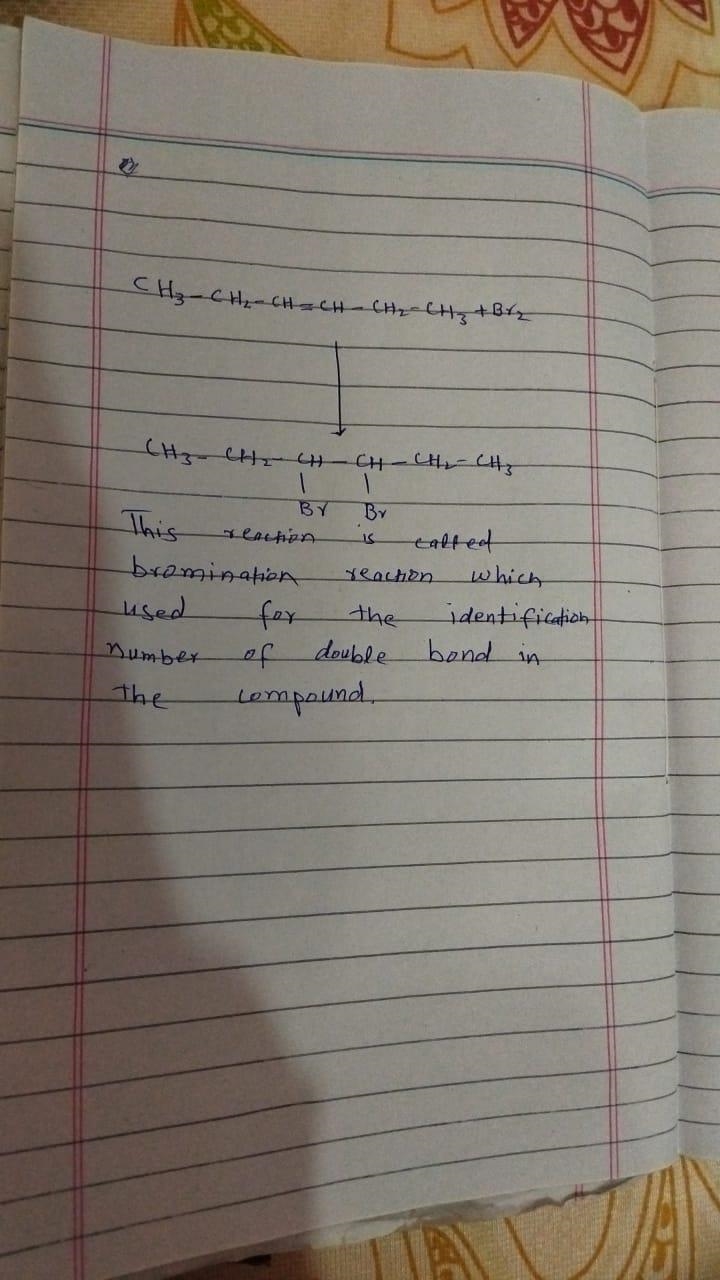 CH3-CH2-CH=CH-CH2-CH3+Br2
CH3-CH2-CH-CH-CH2-CH3
Br Br
This reaction is called
bromination reaction which
used for the identification
number of double bond in
the compound.